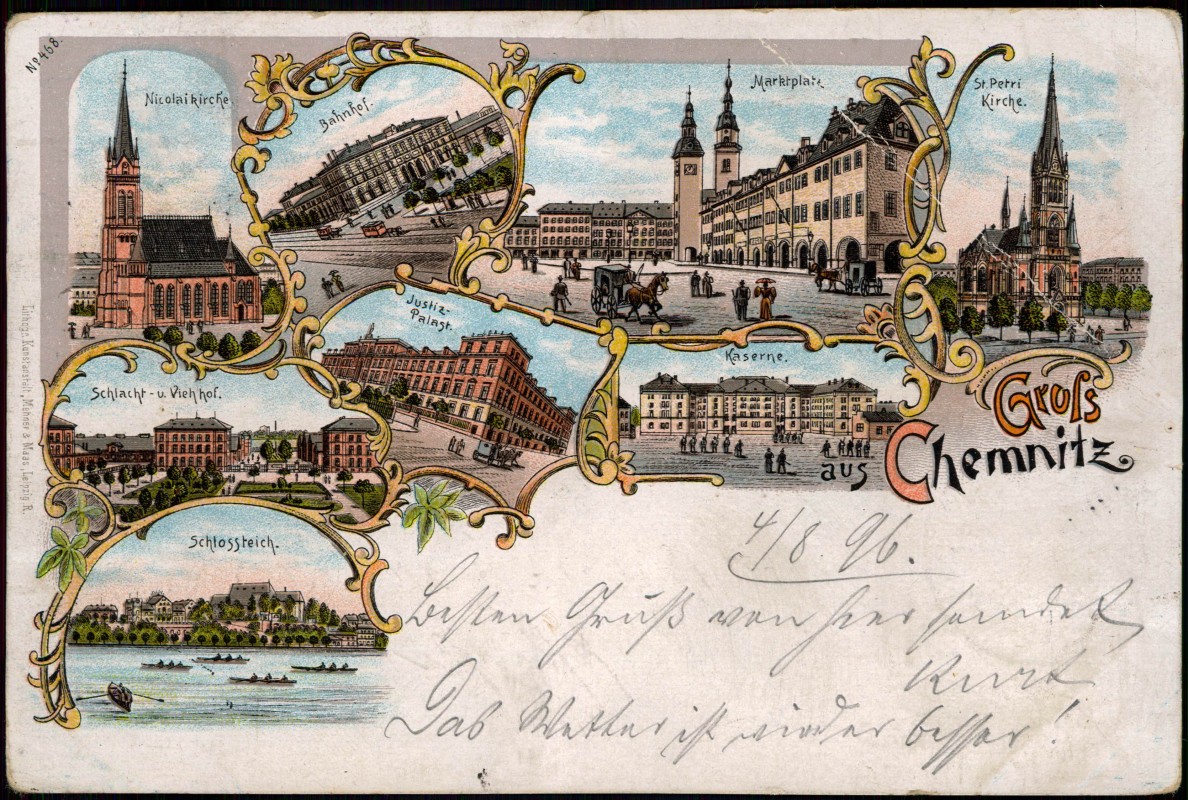 No 468.
Nicolaikirche.
Bahnhof.
Marktplatz
St. Petri
Kirche.
Justiz-
Palast.
Kaserne.
Schlacht- u. Viehhof.
Schlossteich.
Gruss
aus Chemnitz
Lithogr. Kunstanstalt, Mehner & Maas, Leipzig R.
4/8. 96.
Besten Gruß von hier sendet
Kurt
Das Wetter ist wieder besser!